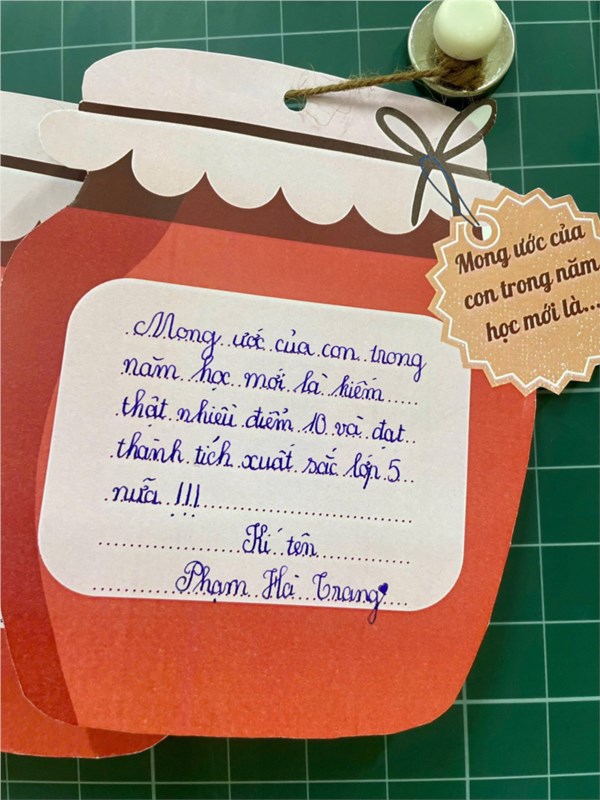 Mong ước của
con trong năm
học mới là...
Mong ước của con trong
năm học mới là kiếm
thật nhiều điểm 10 và đạt
thành tích xuất sắc lớp 5
nữa !!!
Kí tên
Phạm Hà Trang